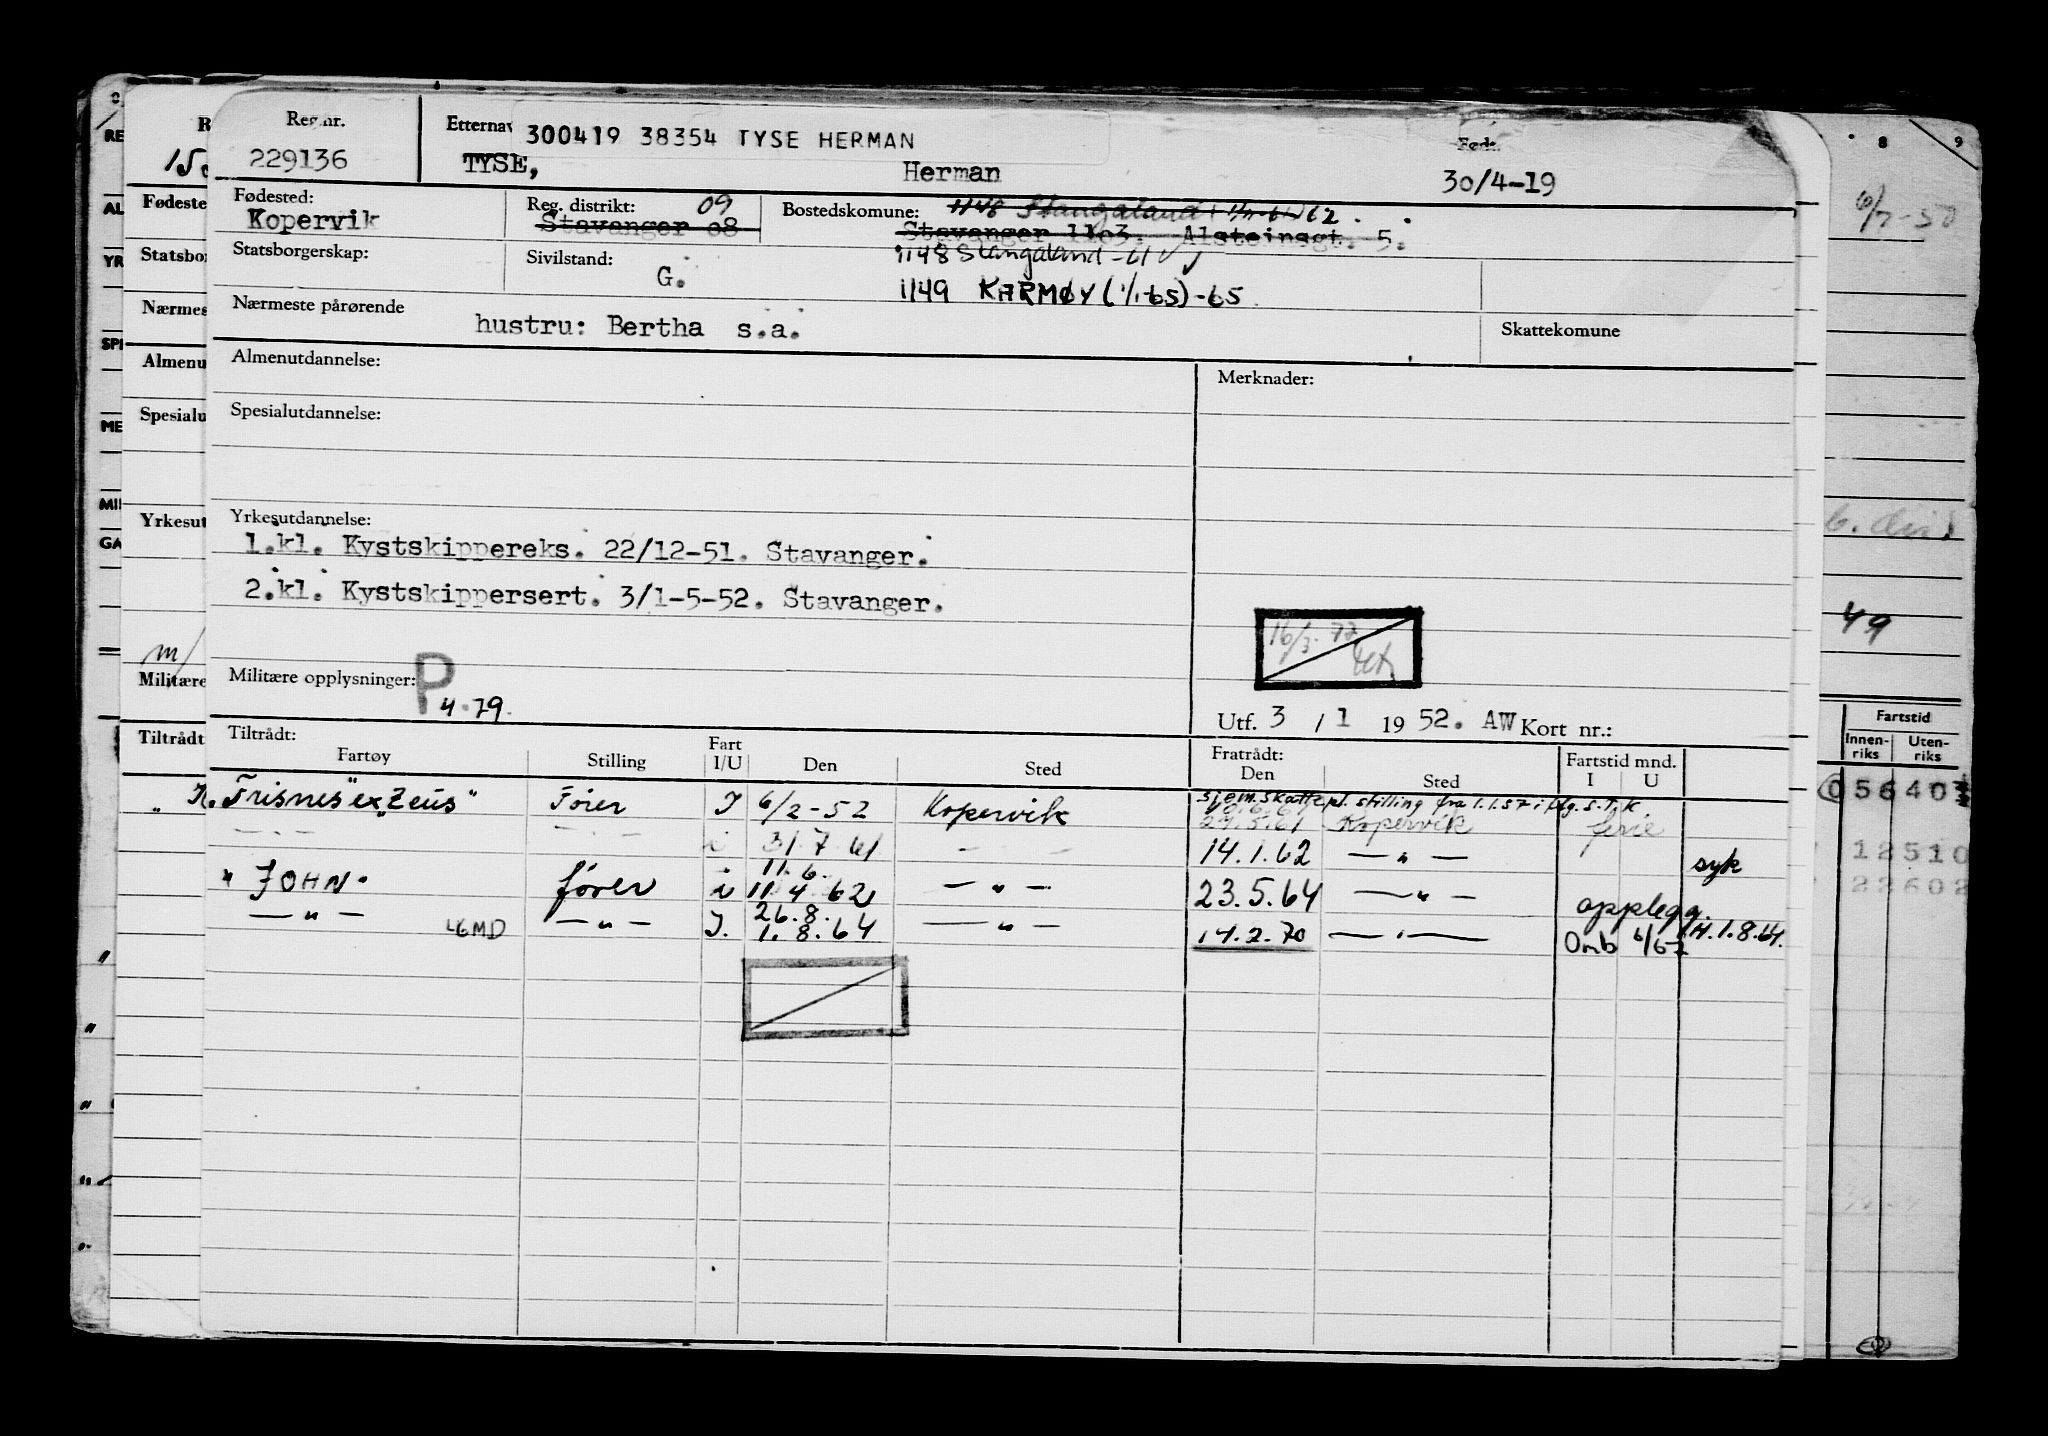 Reg.nr.
229136
Etternav
300419 38354 TYSE HERMAN
TYSE,
Herman
Født:
30/4-19
Fødested:
Kopervik
Reg. distrikt: 09
Stavanger 08
Bostedskomune: 1148 Stangaland 62
Stavanger 1103. Alsteinsgt. 5.
1148 Stangaland -61
1149 KARMØY (1/1-65) -65
Statsborgerskap:
Sivilstand:
G.
Nærmeste pårørende
hustru: Bertha s.a.
Skattekomune
Almenutdannelse:
Merknader:
Spesialutdannelse:
Yrkesutdannelse:
1.kl. Kystskippereks. 22/12-51. Stavanger.
2.kl. Kystskippersert. 3/1-5-52. Stavanger.
16/3-72
Militære opplysninger:
P
4.79.
Utf. 3 / 1 1952. AW Kort nr.:
Tiltrådt:
Fartøy
Stilling
Fart
I/U
Den
Sted
Fratrådt:
Den
Sted
Fartstid mnd.
I U
sjem.skattepl. stilling fra 1.1.57 i flg. S.T.K
K. Trisnes ex "Zeus" Fører I 6/2-52 Kopervik
29.5.61 Kopervik ferie
— " — — " — i 31.7.61 — " — 14.1.62 — " — syk
11.6.
" JOHN" fører i 11.4.62 — " — 23.5.64 — " — opplegg.
26.8.
— " — LGMD — " — I. 1.8.64 — " — 14.2.70 — " — Omb 6/67 H.1.8.64.
Fødeste
Statsbor
Nærmes
Almenu
Spesialu
Yrkesut
m/
Militære
Tiltrådt
RE
AL
YR
SPE
ME
MII
GA
8
9
6/7-50
49
Fartstid
Innen-
riks
Uten-
riks
05640
12510
22602